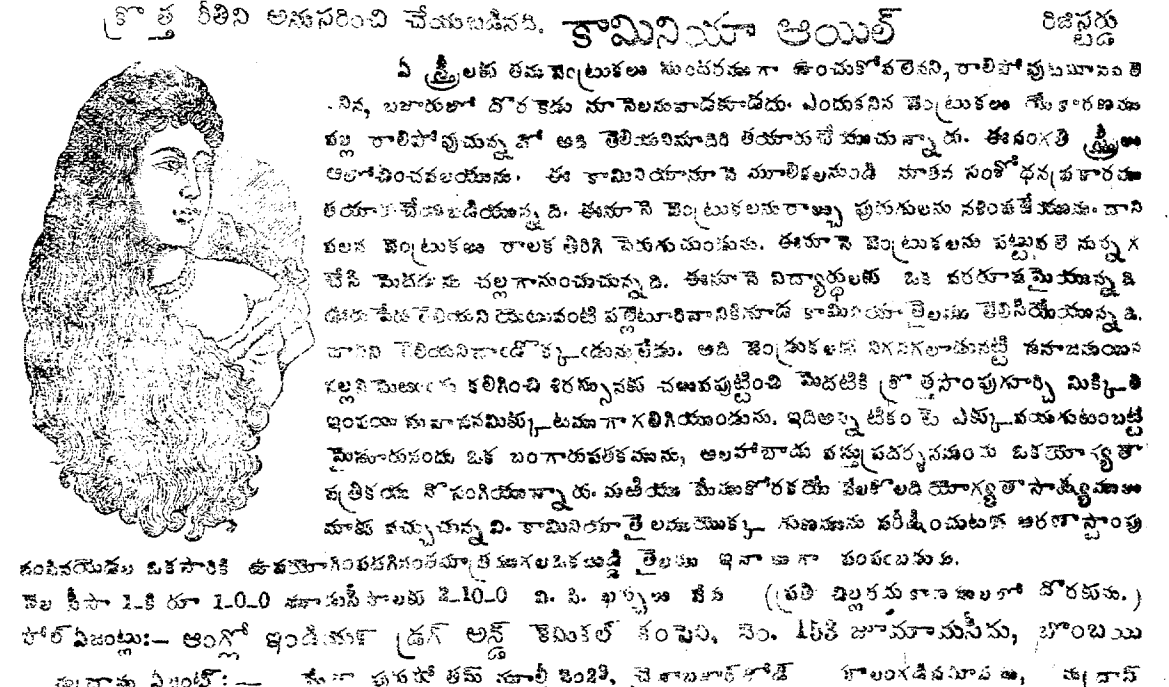 క్రొత్త రీతిని అనుసరించి చేయబడినది. కామినియా ఆయిల్ రిజిస్టర్డు
ఏ స్త్రీలకు తమ వెంట్రుకలు సుందరముగా ఉంచుకోవలెనని, రాలిపోవుట
బజారులో దొరకెడు నూనెలనువాడకూడదు. ఎందుకనిన వెంట్రుకలు యేకారణము
వల్ల రాలిపోవుచున్నవో అది తెలియనిమాదిరి తయారుచేయుచున్నారు. ఈసంగతి స్త్రీలు
ఆలోచించవలయును. ఈ కామినియానూనె మూలికలనుండి నూతన సంశోధనప్రకారము
తయారుచేయబడియున్నది. ఈనూనె వెంట్రుకలనురాల్చు పురుగులను నశింపజేయును. దాని
వలన వెంట్రుకలు రాలక తిరిగి పెరుగుచుండును. ఈనూనె వెంట్రుకలను పట్టువలె నున్నగ
చేసి మెదడును చల్లగానుంచుచున్నది. ఈనూనె విద్యార్థులకు ఒక వరరూపమైయున్నది
తెలియని యెటువంటి పల్లెటూరివానికికూడ కామినియా తైలము తెలిసియేయున్నది.
దానిని తెలియనివాఁడొక్కఁడునులేడు. అది వెండ్రుకలకు నిగనిగలాడునట్టి
కలిగించి శిరస్సునకు చలువపుట్టించి మెదటికి క్రొత్తసొంపుగూర్చి మిక్కిలి
ఇంపయి సువాసనమిక్కుటముగాగలిగియుండును. ఇదిఅన్నిటికంటె ఎక్కువయగుటంబట్టే
మైసూరునందు ఒక బంగారుపతకమును, అలహాబాదు వస్తుప్రదర్శనమందు ఒకయోగ్యతా
పత్రికయు నొసంగియున్నారు. మఱియు మేముకోరకయే వేలకొలది యోగ్యతాసాక్ష్యములు
మాకు వచ్చుచున్నవి. కామినియాతైలముయొక్క గుణమును పరీక్షించుటకు అరణాస్టాంపు
పంపినయెడల ఒకసారికి ఉపయోగింపదగినంతమాత్రముగలఒకబుడ్డి తైలము ఇనాముగా పంపఁబడును.
వెల సీసా 1-కి రూ 1-0-0 మూడుసీసాలకు 2-10-0 వి. పి. ఖర్చులు వేరు (ప్రతి చిల్లరదుకాణములలో దొరకును.)
సోల్ ఏజంట్లు:— ఆంగ్లో ఇండియన్ డ్రగ్ అన్డ్ కెమికల్ కంపెని, నెం. 153 జూమామసీదు, బొంబయి
ఏజంట్:—